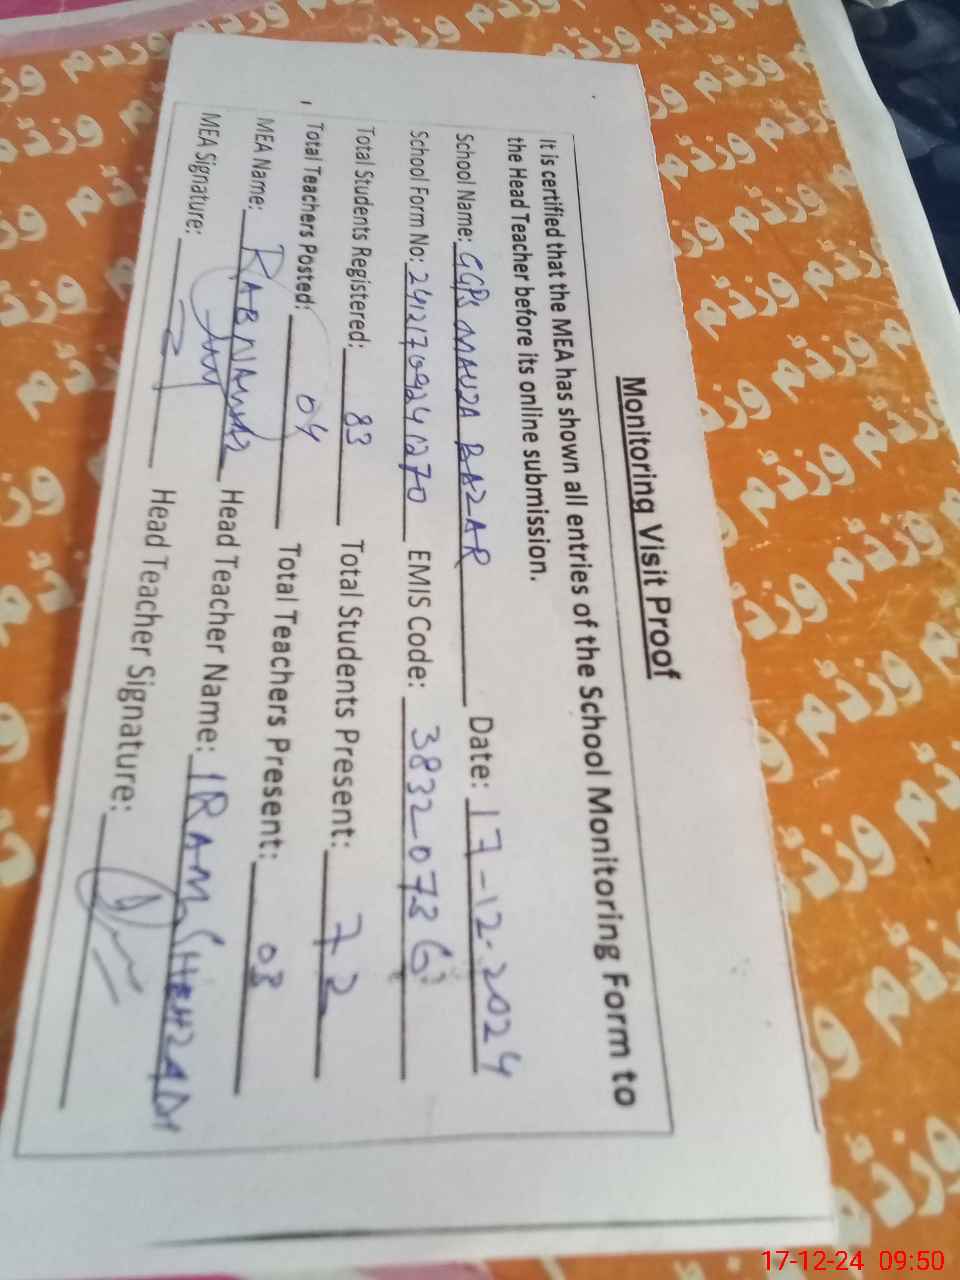 Monitoring Visit Proof
It is certified that the MEA has shown all entries of the School Monitoring Form to
the Head Teacher before its online submission.
School Name: GGPS MAUZA BAZAR Date: 17-12-2024
School Form No: 241217092441270 EMIS Code: 38320736
Total Students Registered: 83 Total Students Present: 72
Total Teachers Posted: 04 Total Teachers Present: 03
MEA Name: RAB NAWAZ Head Teacher Name: IRAM SHEHZADI
MEA Signature: Head Teacher Signature:
ورثم ورثم ورثم
17-12-24 09:50